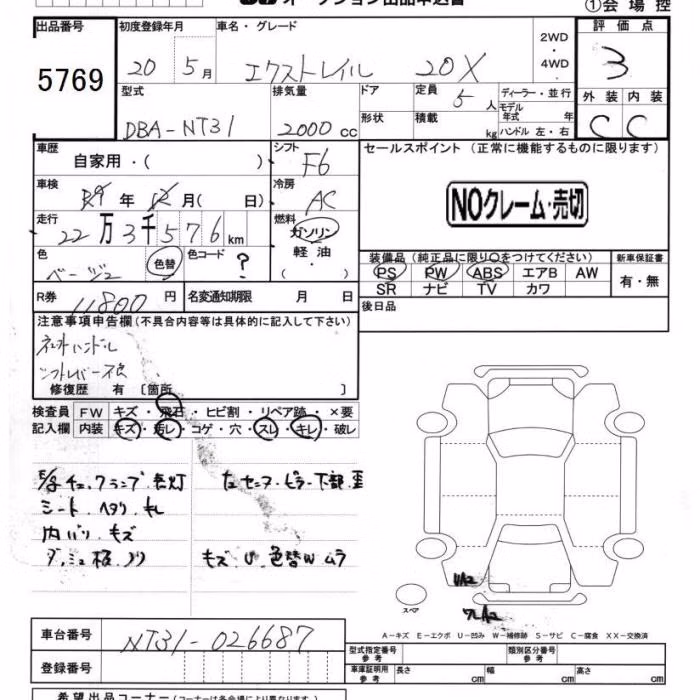 オークション出品申込書
①会場控
出品番号 初度登録年月 車名・グレード 2WD・4WD 評価点
5769 20 5月 エクストレイル 20X 3
型式 排気量 ドア 定員 5人 ディーラー・並行 外装 内装
DBA-NT31 2000cc 形状 積載 kg モデル年式 年 ハンドル 左・右 C C
車歴 自家用・( ) シフト F6 セールスポイント (正常に機能するものに限ります)
車検 年 月( 日) 冷房 AC NOクレーム・売切
走行 22万3千576km 燃料 ガソリン 軽油・( )
色 ベージュ 色替 色コード ? 装備品 (純正品に限り〇をつけてください) 新車保証書
PS PW ABS エアB AW 有・無
SR ナビ TV カワ
R券 11800円 名変通知期限 月 日 後日品
注意事項申告欄(不具合内容等は具体的に記入して下さい)
修復歴 有 〔箇所 〕
検査員 FW キズ・飛石・ヒビ割・リペア跡・×要
記入欄 内装 キズ・汚レ・コゲ・穴・スレ・キレ・破レ
シート・ヘタリ・キレ
内バリ・キズ
キズ・U 色替W ムラ
UA2
スペア
A-キズ E-エクボ U-凹み W-補修跡 S-サビ C-腐食 XX-交換済
車台番号 NT31-026687 型式指定番号 参考 類別区分番号 参考
登録番号 車庫証明用 参考 長さ cm 幅 cm 高さ cm
希望出品コーナー(コーナーは各会場により異なります)